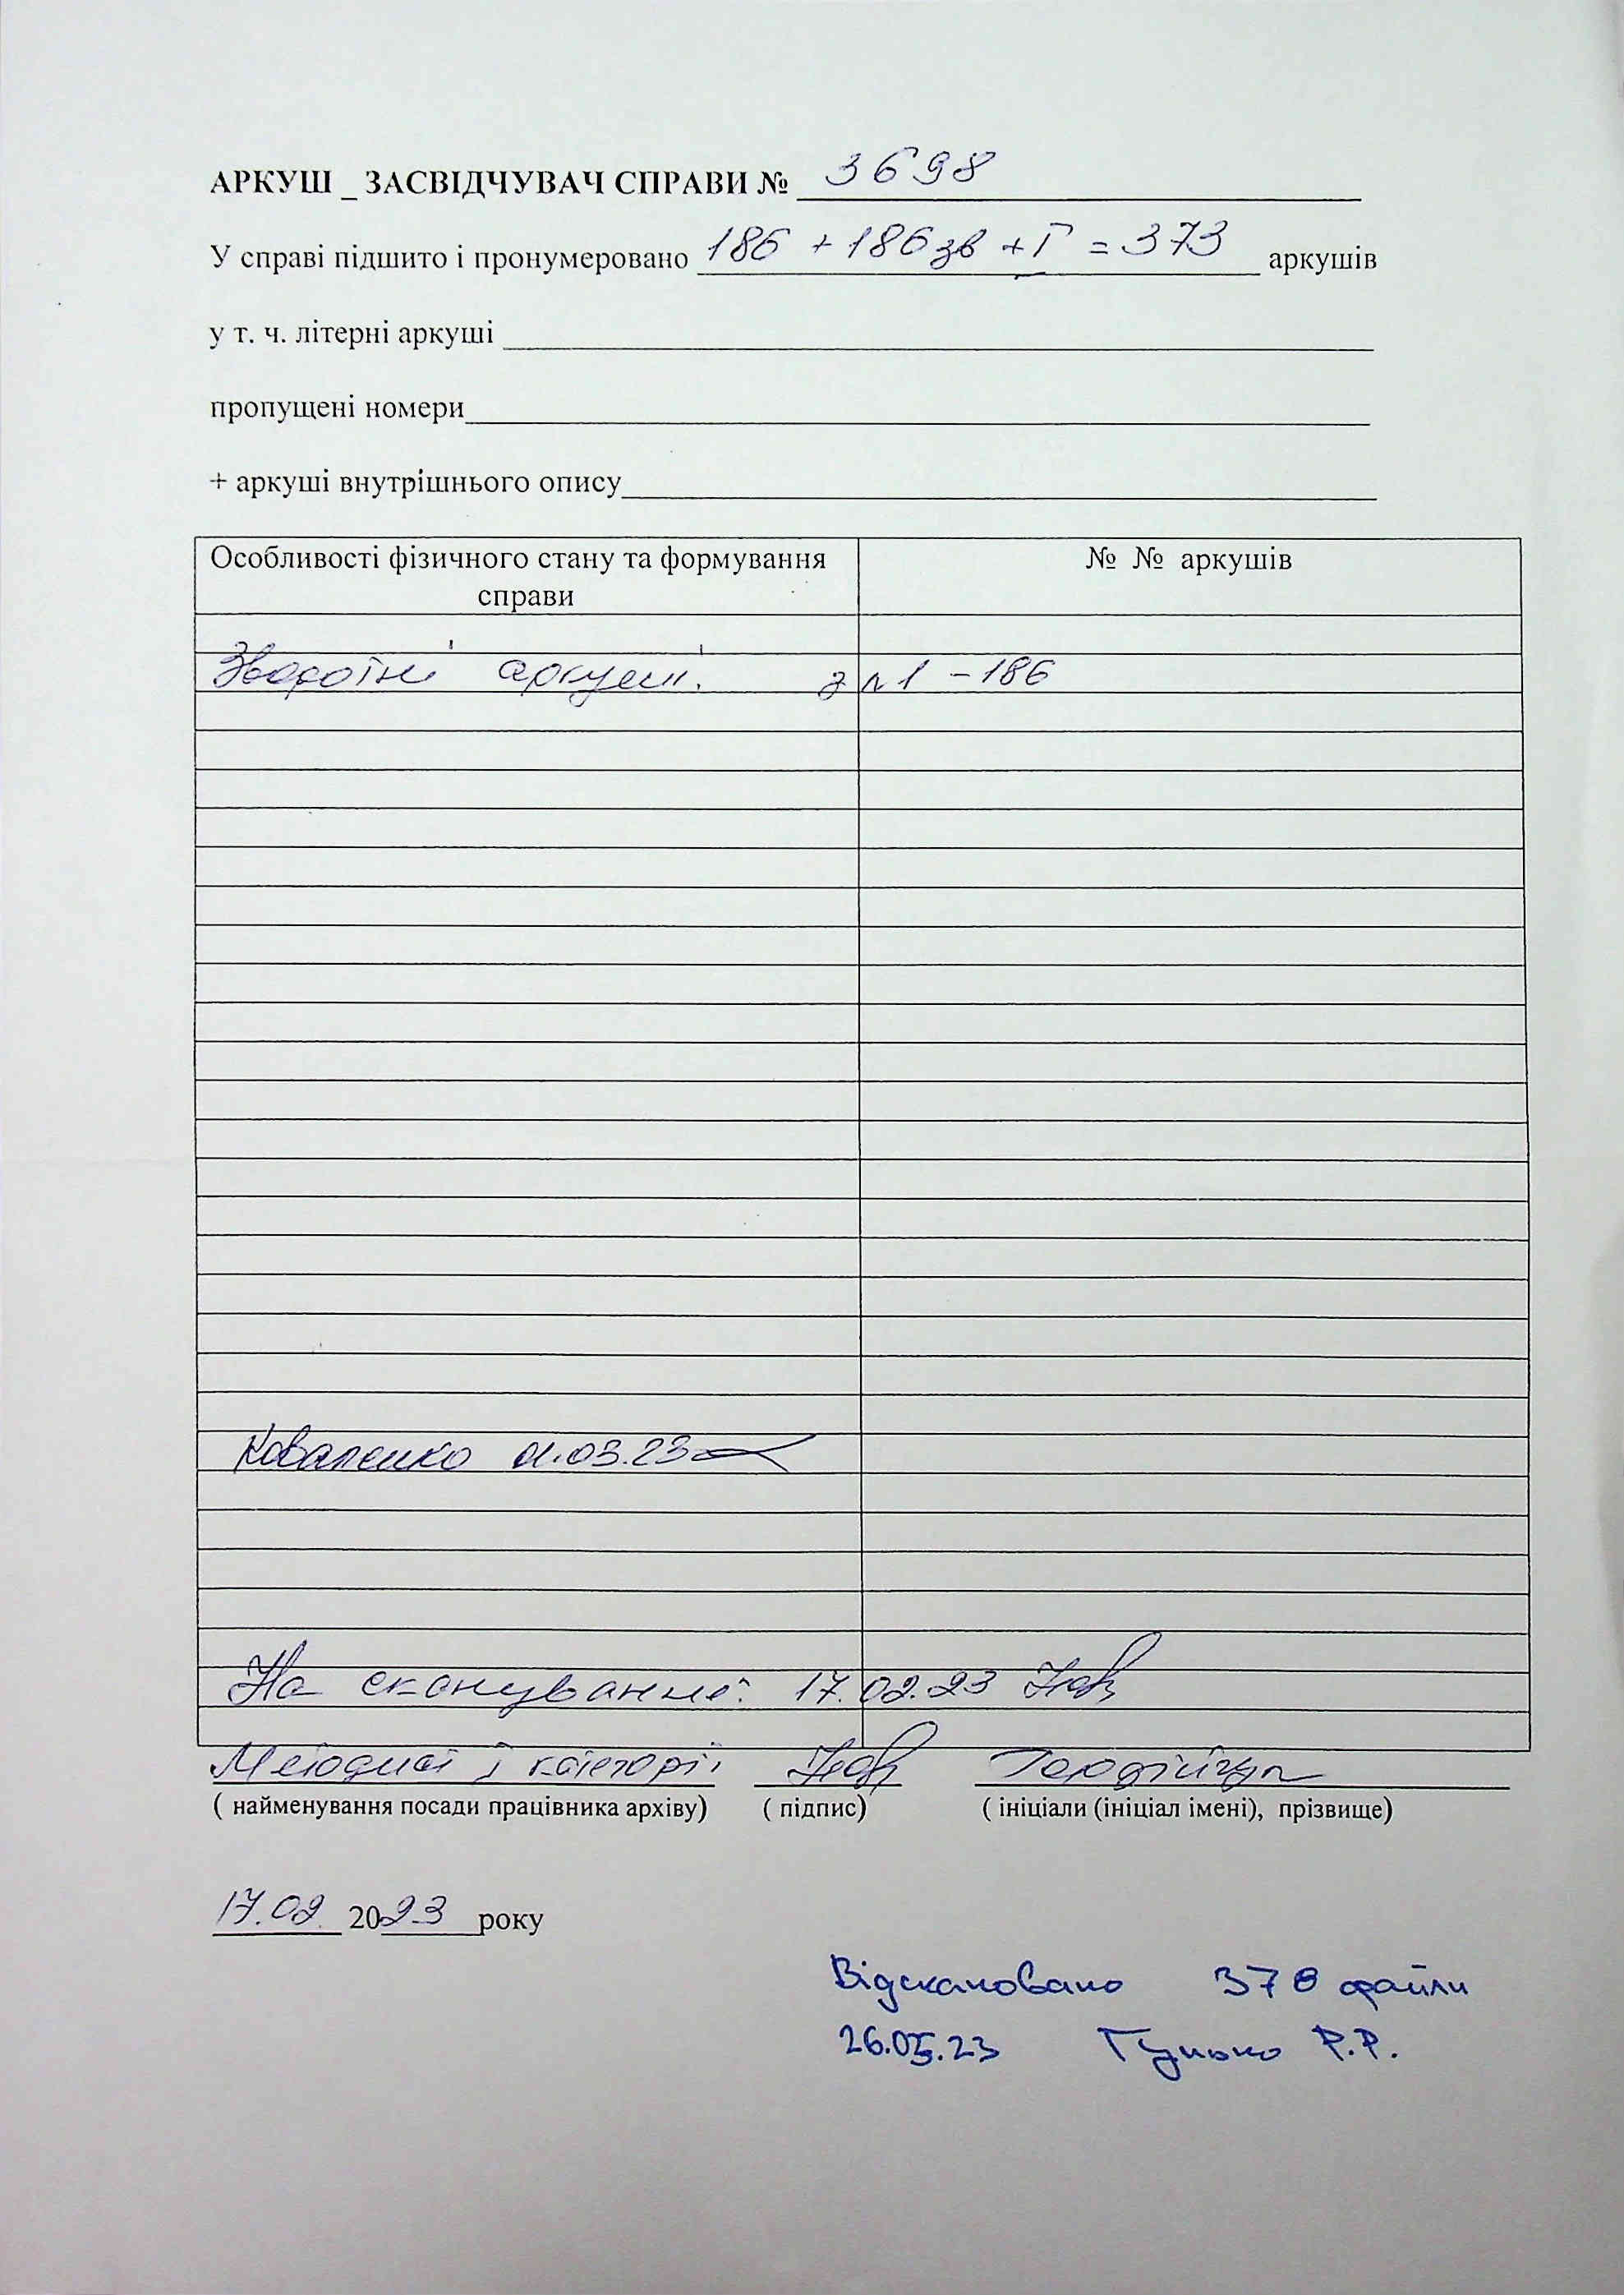 АРКУШ _ ЗАСВІДЧУВАЧ СПРАВИ № 3698
У справі підшито і пронумеровано 186 + 186 зв + Г = 373 аркушів
у т. ч. літерні аркуші
пропущені номери
+ аркуші внутрішнього опису
Особливості фізичного стану та формування справи
№ № аркушів
Зворотні аркуші. з л 1 - 186
Коваленко 01.03.23
На сканування: 17.02.23
Методист І категорії
( найменування посади працівника архіву) ( підпис) ( ініціали (ініціал імені), прізвище)
17.02. 2023 року
Відскановано 378 файли
26.05.23 Гунько Р.Р.